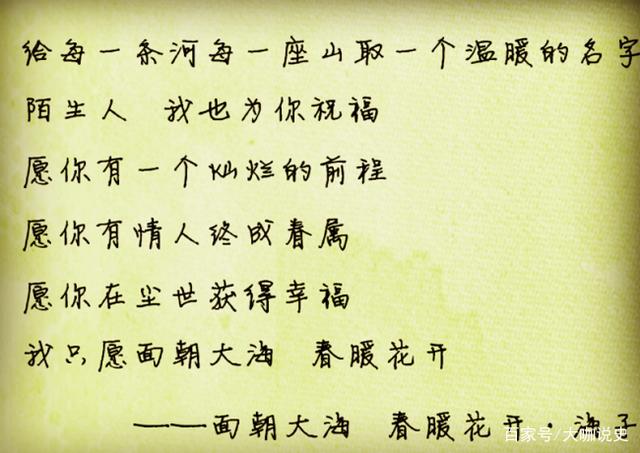 给每一条河每一座山取一个温暖的名字
陌生人 我也为你祝福
愿你有一个灿烂的前程
愿你有情人终成眷属
愿你在尘世获得幸福
我只愿面朝大海 春暖花开
——面朝大海 春暖花开·海子
百家号/大咖说史